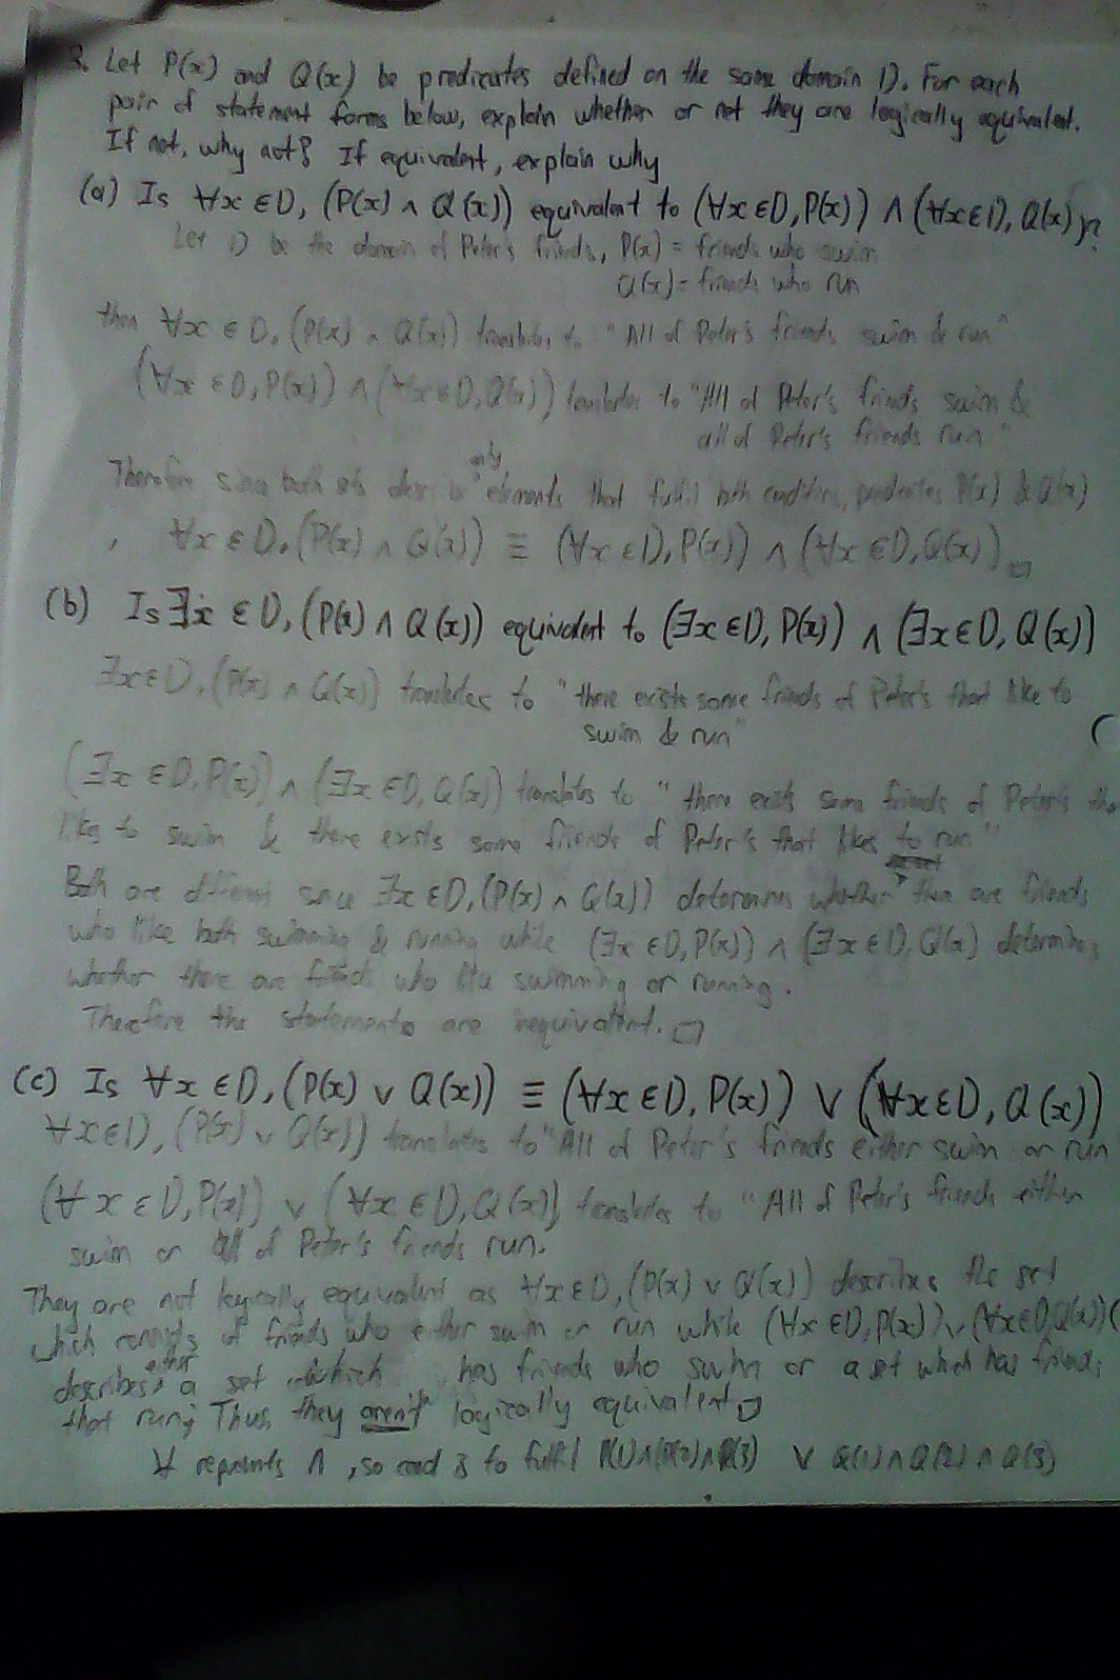 2. Let P(x) and Q(x) be predicates defined on the same domain D. For each
pair of statement forms below, explain whether or not they are logically equivalent.
If not, why not? If equivalent, explain why
(a) Is ∀x ∈ D, (P(x) ∧ Q(x)) equivalent to (∀x ∈ D, P(x)) ∧ (∀x ∈ D, Q(x))?
Let D be the domain of Peter's friends, P(x) = friends who swim
Q(x) = friends who run
then ∀x ∈ D, (P(x) ∧ Q(x)) translates to "All of Peter's friends swim & run"
(∀x ∈ D, P(x)) ∧ (∀x ∈ D, Q(x)) translates to "All of Peter's friends swim &
all of Peter's friends run"
only
Therefore since both sets describe elements that fulfil both conditions, P(x) & Q(x)
, ∀x ∈ D, (P(x) ∧ Q(x)) ≡ (∀x ∈ D, P(x)) ∧ (∀x ∈ D, Q(x)) □
(b) Is ∃x ∈ D, (P(x) ∧ Q(x)) equivalent to (∃x ∈ D, P(x)) ∧ (∃x ∈ D, Q(x))
∃x ∈ D, (P(x) ∧ Q(x)) translates to "there exists some friends of Peter's that like to
swim & run"
(∃x ∈ D, P(x)) ∧ (∃x ∈ D, Q(x)) translates to "there exists some friends of Peter's tha
likes to swim & there exists some friends of Peter's that likes to run"
Both are different since ∃x ∈ D, (P(x) ∧ Q(x)) determines whether there are friends
who like both swimming & running while (∃x ∈ D, P(x)) ∧ (∃x ∈ D, Q(x) determines
whether there are friends who like swimming or running.
Therefore the statements are inequivalent. □
(c) Is ∀x ∈ D, (P(x) ∨ Q(x)) ≡ (∀x ∈ D, P(x)) ∨ (∀x ∈ D, Q(x))
∀x ∈ D, (P(x) ∨ Q(x)) translates to "All of Peter's friends either swim or run
(∀x ∈ D, P(x)) ∨ (∀x ∈ D, Q(x)) translates to "All of Peter's friends either
swim or all of Peter's friends run.
They are not logically equivalent as ∀x ∈ D, (P(x) ∨ Q(x)) describes the set
which consists of friends who either swim or run while (∀x ∈ D, P(x)) ∨ (∀x ∈ D, Q(x))
describes either a set which has friends who swim or a set which has friends
that run; Thus they aren't logically equivalent □
∀ represents ∧, so need 3 to fulfil P(1) ∧ P(2) ∧ P(3) ∨ Q(1) ∧ Q(2) ∧ Q(3)